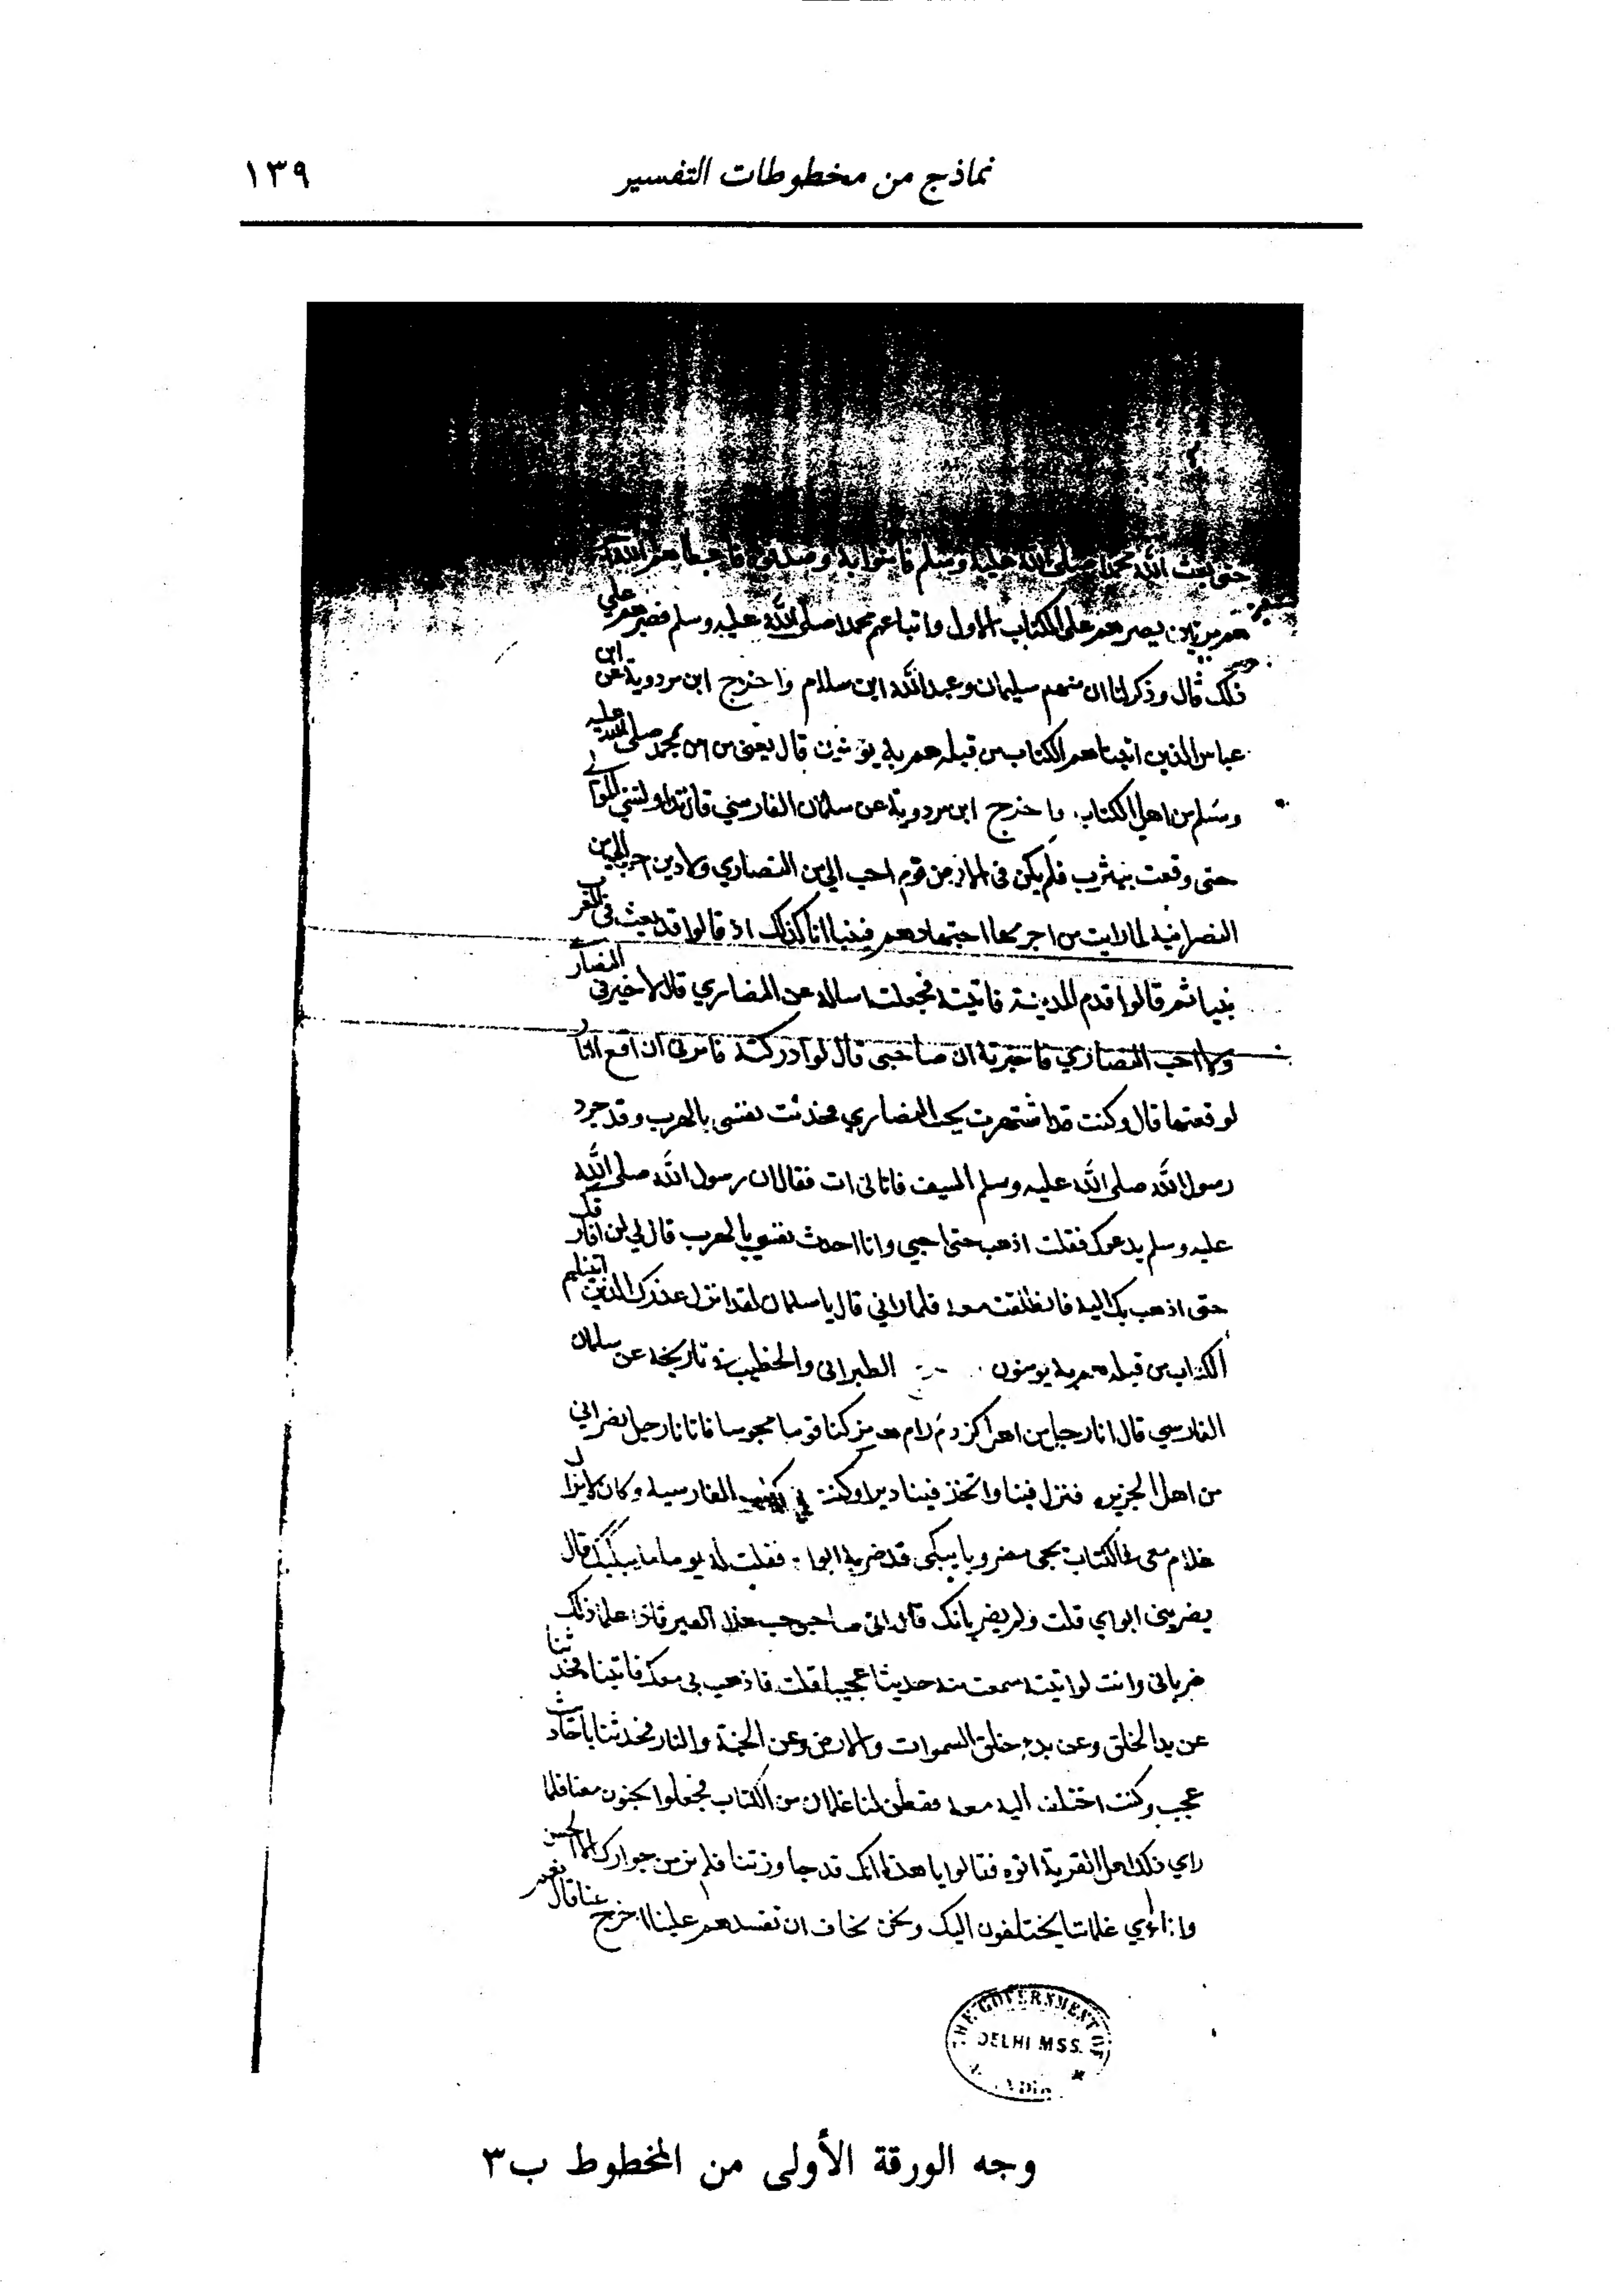 نماذج من مخطوطات التفسير ١٣٩
حتى بعث الله محمدا صلى الله عليه وسلم فامنوا به وصدقوه فاعطاهم الله
مرتين بصبرهم على الكتاب الاول واتباعهم محمدا صلى الله عليه وسلم فصبرهم على
ذلك قال وذكر لنا ان منهم سليمان وعبد الله ابن سلام واخرج ابن مردوية عن ابن
عباس الذين اتيناهم الكتاب من قبله هم به يؤمنون قال يعني من امن بمحمد صلى الله عليه
وسلم من اهل الكتاب واخرج ابن مردوية عن سلمان الفارسي قال تداولتني الموالي
حتى وقعت بيثرب فلم يكن في الارض قوم احب الي من النصاري ولا دين احب الي من
النصرانية لما رايت من اجتهادهم فبينا انا كذلك اذ قالوا قد بعث في العرب
نبيا ثم قالوا قدم المدينة فاتيته فجعلت اساله عن النصاري قال لا خير في النصاري
ولا احب النصاري فاخبرته ان صاحبي قال لو ادركته فامرني ان اقع النار
لوقعتها قال وكنت قد اشتهرت بحب النصاري فحدثت نفسي بالهرب وقد جرد
رسول الله صلى الله عليه وسلم السيف فاتاني ات فقال ان رسول الله صلى الله
عليه وسلم يدعوك فقلت اذهب حتى اجي وانا احدث نفسي بالهرب قال لي لن افارقك
حتى اذهب بك اليه فانطلقت معه فلما راني قال يا سلمان لقد انزل عذرك الذين اتيناهم
الكتاب من قبله هم به يومنون الطبراني والخطيب في تاريخه عن سلمان
الفارسي قال انا رجل من اهل رام هرمز كنا قوما مجوسا فاتانا رجل نصراني
من اهل الجزيره فنزل فينا واتخذ فينا ديرا وكنت في الفارسية وكان لا يزال
غلام معي في الكتاب يجي مضروبا يبكي قد ضربه ابواه فقلت له يوما ما يبكيك قال
يضربني ابواي قلت ولم يضربانك قال اتي صاحب هذا الدير فاذا علما ذلك
ضرباني وانت لو اتيته سمعت منه حديثا عجيبا قلت فاذهب بي معك فاتيناه فحدثنا
عن بدا الخلق وعن بدء خلق السموات والارض وعن الجنة والنار فحدثنا باحاديث
عجب وكنت اختلف اليه معه ففطن لنا غلمان من الكتاب فجعلوا يجئون معنا فلما
راي ذلك اهل القرية اتوه فقالوا يا هذا انك قد جاورتنا فلم نر من جوارك الا الحسن
وانا نري غلماننا يختلفون اليك ونحن نخاف ان تفسدهم علينا اخرج عنا قال نعم
THE GOVERNMENT OF
DELHI MSS.
INDIA
وجه الورقة الأولى من المخطوط ب٣